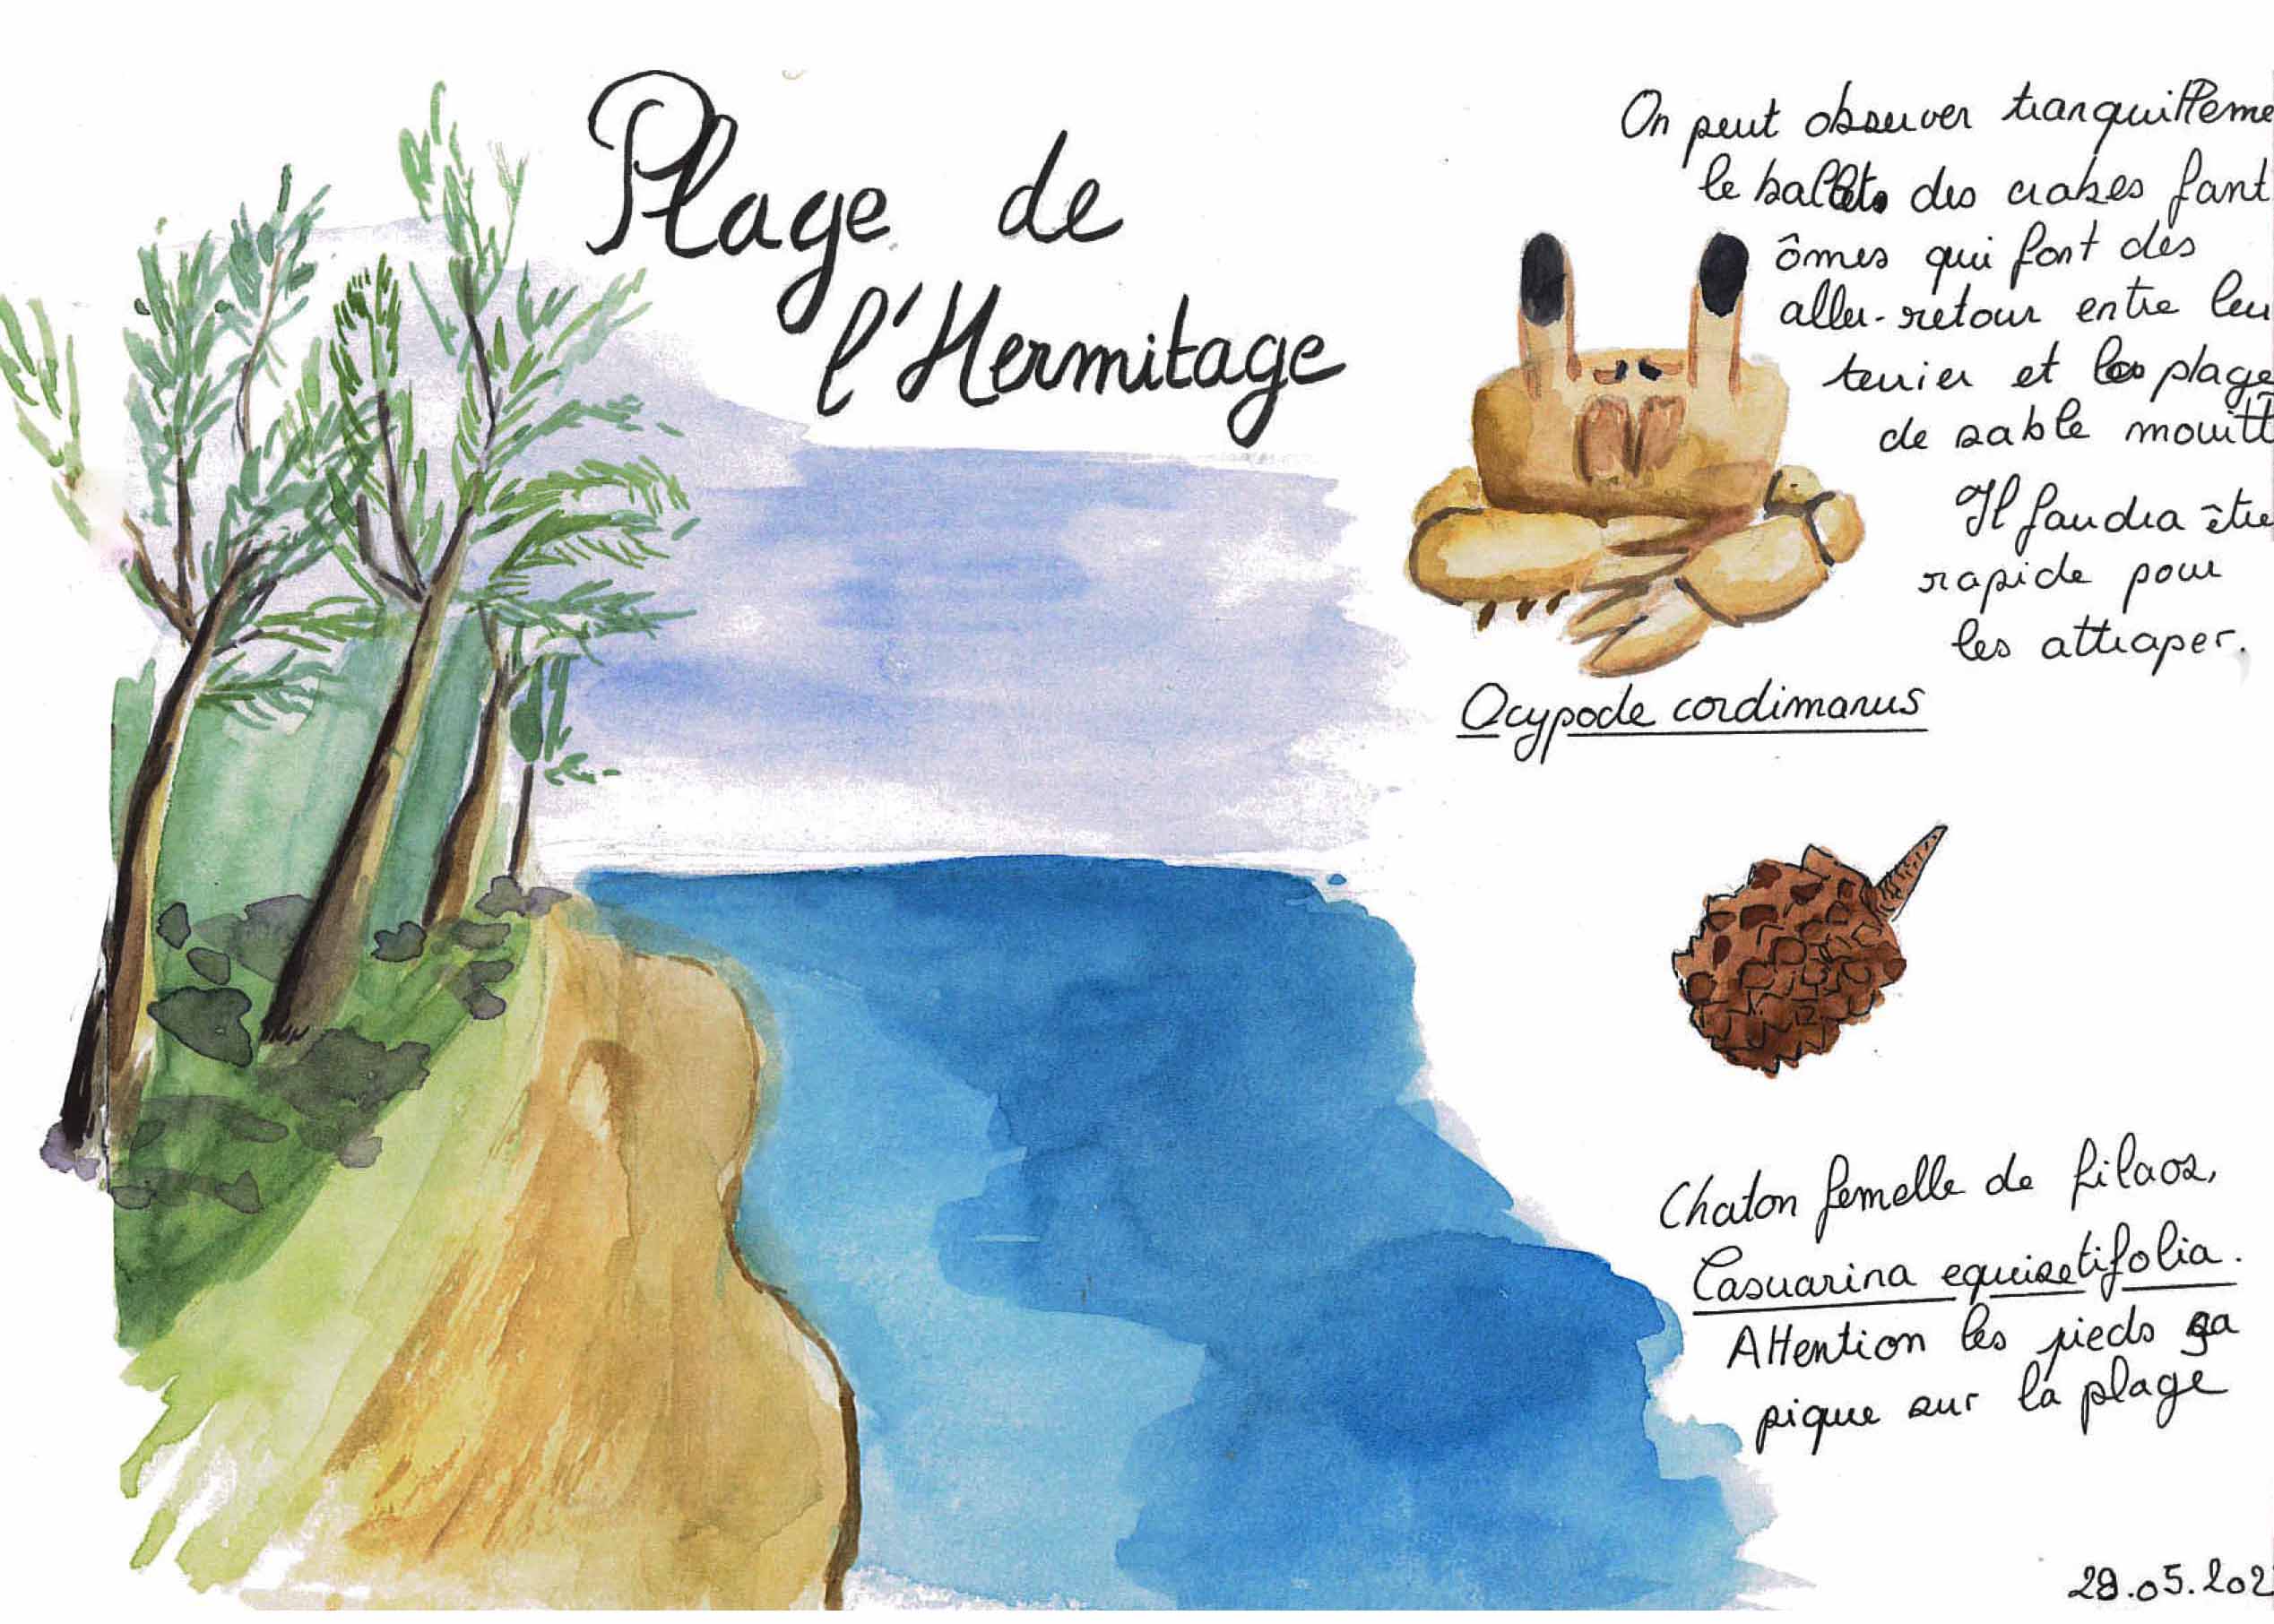 Plage de
l'Hermitage
On peut observer tranquilleme
le ballets des crabes fant
ômes qui font des
aller-retour entre leu
terrier et la plage
de sable mouill
Il faudra être
rapide pour
les attraper.
Ocypode cordimanus
Chaton femelle de filaos,
Casuarina equisetifolia.
Attention les pieds ça
pique sur la plage
28.05.202